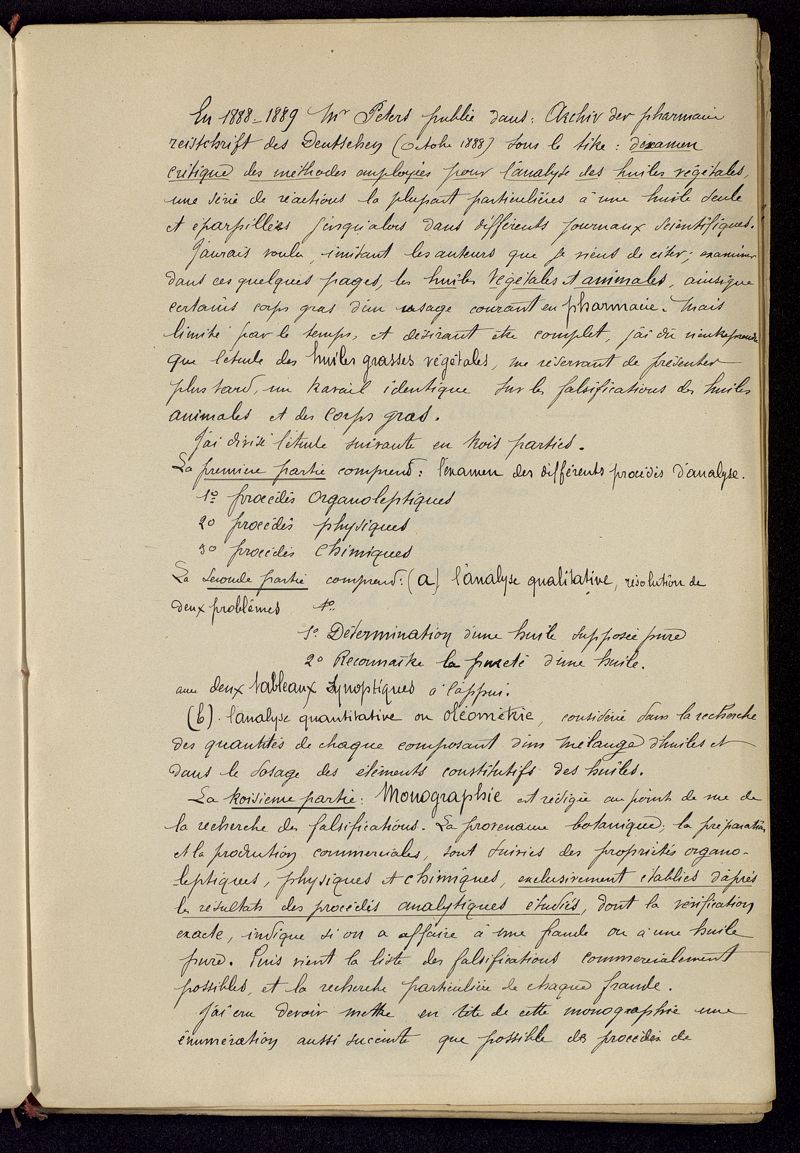 En 1888-1889 Mr Peters publie dans: Archiv der pharmacie
zeitschrift des Deutschen (octobre 1888) sous le titre: d'examen
critique des méthodes employées pour l'analyse des huiles végétales,
une série de réactions la plupart particulières à une huile seule
et éparpillées jusqu'alors dans différents journaux scientifiques.
J'aurais voulu, imitant les auteurs que je viens de citer, examiner
dans ces quelques pages, les huiles végétales et animales, ainsi que
certains corps gras d'un usage courant en pharmacie. Mais
limité par le temps, et désirant être complet, j'ai dû n'entreprendre
que l'étude des huiles grasses végétales, me réservant de présenter
plus tard, un travail identique sur les falsifications des huiles
animales et des corps gras.
J'ai divisé l'étude suivante en trois parties.
La première partie comprend: l'examen des différents procédés d'analyse.
1º procédés organoleptiques
2º procédés physiques
3º procédés chimiques
La seconde partie comprend: (a) l'analyse qualitative, résolution de
deux problèmes 1º.
1º Détermination d'une huile supposée pure
2º Reconnaître la pureté d'une huile.
avec deux tableaux synoptiques à l'appui.
(b). l'analyse quantitative ou oléométrie, considérée dans la recherche
des quantités de chaque composant d'un mélange d'huiles et
dans le dosage des éléments constitutifs des huiles.
La troisième partie: Monographie est rédigée au point de vue de
la recherche des falsifications. La provenance botanique, la préparation
et la production commerciales, sont suivies des propriétés organo-
leptiques, physiques et chimiques, exclusivement établies d'après
les résultats des procédés analytiques étudiés, dont la vérification
exacte, indique si on a affaire à une fraude ou à une huile
pure. Puis vient la liste des falsifications commercialement
possibles, et la recherche particulière de chaque fraude.
J'ai cru devoir mettre en tête de cette monographie une
énumération aussi succinte que possible des procédés de